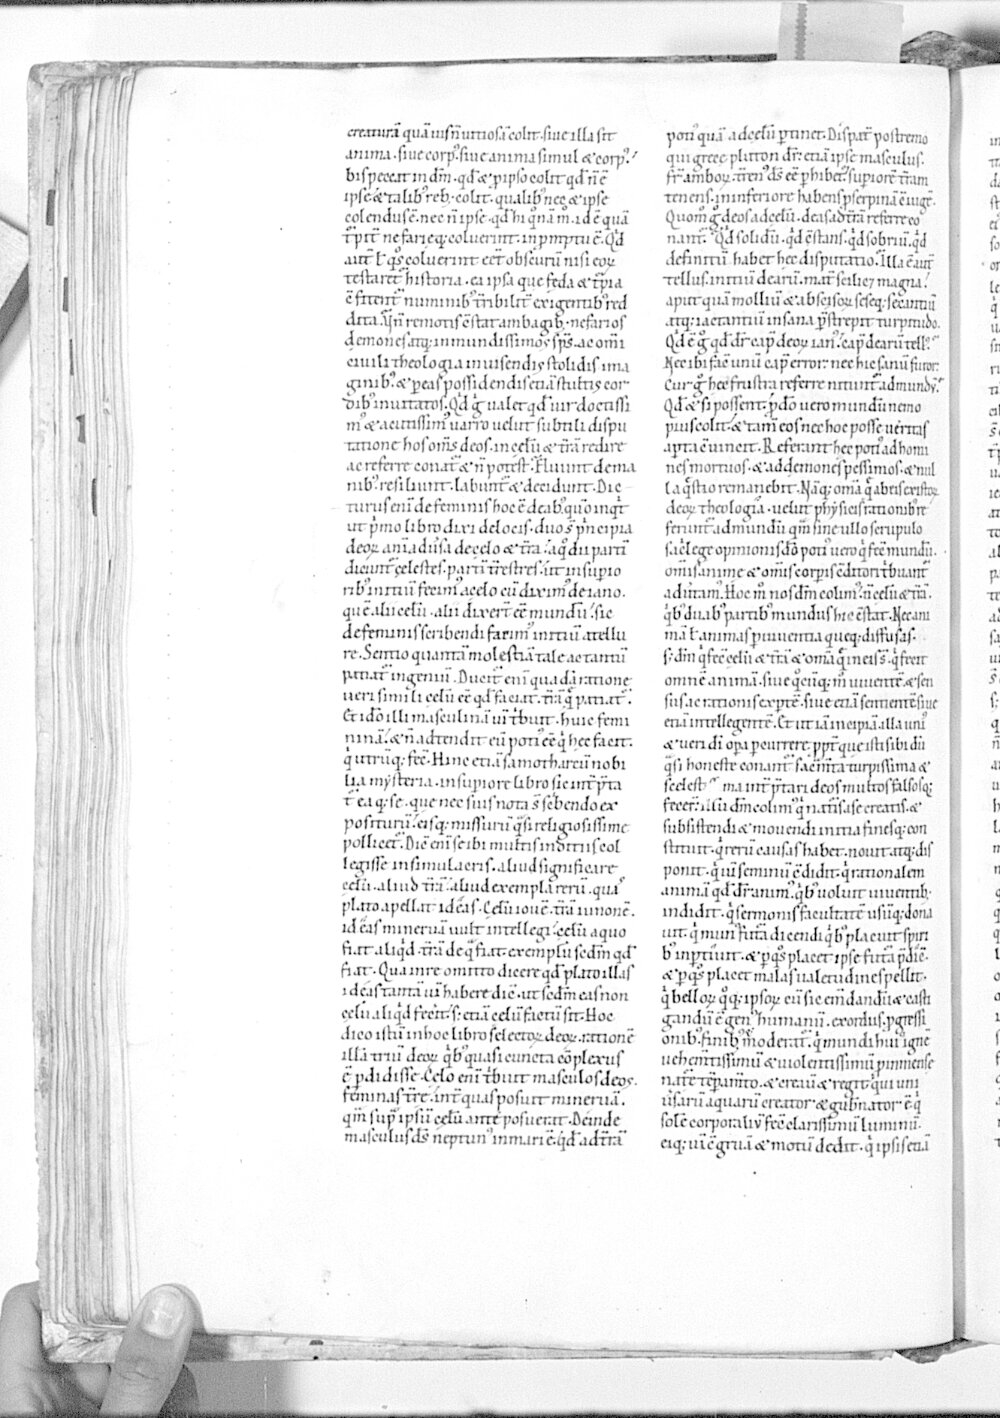 creaturā quā uis n̄ uitiosā colit· siue illa sit
anima· siue corp⁹· siue anima simul & corp⁹·
bis peccat in dm̄· qđ & p̱ ipso colit qđ n̄ ē
ipse & talib⁹ reb⁹ colit· qualib⁹ nec & ipse
colendus ē· nec n̄ ipse·
testaret̄ historia· ea ipsa que feda & t̄pia
ē fitent̄ numinib⁹ t̄ribilit̄ exigentib⁹ red
dita· Vn̄ remotis ē stat ambagib⁹· nefarios
demones atq; inmundissimos sp̄s· ac om̄i
ciuili theologia inuisendis stolidis ima
ginib⁹· & p̱ eas possidendis etiā stultis cor
dib⁹ inuitatos· Qđ g̊ ualet qđ uir doctissi
m⁹ & acutissim⁹ uarro uelut subtili dispu
tatione hos om̄s deos· in celū & t̄rā redire
ac referre conat̄ & n̄ potest· Fluunt de ma
nib⁹· resiliunt· labunt̄ & decidunt· Dic
turus eni de feminis hoc ē deab⁹· quo inqt
ut p̄mo libro dixi de locis· duo s̄ p̄ncipia
deoꝝ animaduersa de celo & t̄ra· a q⁹ dii parti
dicunt̄ celestes· parti t̄restres· ut in supio
rib⁹ initiū fecim⁹ a celo cū dixim⁹ de iano·
quē alii celū· alii dixert̄ eē mundū· sic
de feminis scribendi facim⁹ initiū a tellu
re· Sentio quantā molestiā tale ac tantū
patiat̄ ingeniū· Ducit̄ eni quadā ratione
ueri simili celū eē qđ faciat· t̄rā q̄ patiat̄·
Et iđo illi masculinā uī t̄buit· huic femi
ninā· & n̄ adtendit eū poti⁹ eē q̇ hec facit·
q̇ utrūq; fec̄· Hinc etiā samothracū nobi
lia mysteria· in supiore libro sic int̄p̄ta
t̄· eaq; se· que nec suis nota s̄ scbendo ex
positurū· eisq; missurū q̄si religiosissime
pollicet̄· Dic̄ eni se ibi multis indiciis col
legisse in simulacris· aliud significare
celū· aliud t̄rā· aliud exempla rerū· quas
plato apellat ideas· Celū iouē· t̄rā iunonē·
ideas mineruā uult intellegi· celū a quo
fiat aliqđ· t̄rā de q̇ fiat· exemplū sc̄dm̄ qđ
fiat· Qua in re omitto dicere qđ plato illas
ideas tantā uī habere dic̄· ut sc̄dm̄ eas non
celū aliqđ fecit· s; etiā celū factū sit· Hoc
dico istū in hoc libro selectoꝝ deoꝝ· rationē
illā triū deoꝝ q̇b⁹ quasi cuncta cōplexus
ē p̱didisse· Celo eni t̄buit masculos deos·
feminas t̄re· int̄ quas posuit mineruā·
quā sup̱ ipsū celū ante posuerat· Deinde
masculus ds̄ neptun⁹ in mari ē· qđ ad t̄rā
poti⁹ quā ad celū p̱tinet· Dispat̄ postremo
qui grece pluton dr̄· etiā ipse masculus·
fr̄ amboꝝ· t̄ren⁹ ds̄ eē p̱hibet̄· supiorē t̄ram
tenens· in inferiore habens p̱serpinā ciugē·
Quom̊ g̊ deos ad celū· deas ad t̄rā referre co
nant̄· Qđ solidū· qđ ēstans· qđ sobriū· qđ
definitū habet hec disputatio· Illa ē aut̄
tellus· initiū dearū· mat̄ scilicꝫ magna·
aput quā molliū & abscisoꝝ seseq; secantiū
atq; iactantiū insana p̱strepit turpitudo·
Qđ ē g̊ qđ dr̄ cap̱ deoꝝ ian⁹· cap̱ dearū tell⁹·
Nec ibi fac̄ unū cap̱ error· nec hic sanū furor·
Cur g̊ hec frustra referre nitunt̄ ad mundū·
Qđ & si possent· p̱ do uero mundū nemo
pius colit· & tam̄ eos nec hoc posse ueritas
apta ēuincit· Referant hec poti⁹ ad homi
nes mortuos· & ad demones pessimos· & nul
la q̄stio remanebit· Nāq; om̄a
deoꝝ theologia· uelut physicis rationib⁹ re
ferunt̄ ad mundū qm̄ sine ullo scrupulo
sacrilege opinionis· do poti⁹ uero q̇ fec̄ mundū·
om̄is anime & om̄is corp̱is ēditori t̄buant̄
aduertam⁹· Hoc m̊ nos dm̄ colim⁹· n̄ celū & t̄rā·
q̇b⁹ duab⁹ partib⁹ mundus hic ēstat· Nec ani
mā l̄ animas p̱ uiuentia queq; diffusas·
s; dm̄ q̇ fec̄ celū & t̄rā & om̄a q̄ in eis s̄· q̇ fecit
omnē animā· siue q̇cūq; m̊ uiuentē & sen
sus ac rationis exptē· siue etiā sentientē siue
etiā intellegentē· Et ut iā incipiā illa uni⁹
& ueri di op̱a p̱currere· ppt̄ que isti sibi dū
q̄si honeste conant̄ sacram̄ta turpissima &
scelestissima int̄p̄tari deos multos falsosq;
fecer̄· illū dm̄ colim⁹ q̇ natī s a se creatis· &
subsistendi & mouendi initia finesq; con
stituit· q̇ rerū causas habet· nouit atq; dis
ponit· q̇ uī seminū ēdidit· q̇ rationalem
animā qđ dr̄ anim⁹· q̇b⁹ uoluit uiuentib⁹
indidit· q̇ sermonis facultatē usūq; dona
uit· q̇ mun⁹ futura dicendi q̇b⁹ placuit spiri
tib⁹ inp̱tiuit· & p̱ q⁹s placet ipse futura p̄dic̄·
& p̱ q⁹s placet malas ualetudines pellit·
q̇ belloꝝ q̊q; ipsoꝝ cū sic em̄dandū & casti
gandū ē gen⁹ humanū· exordiis p̱gressi
onib⁹ finib⁹ moderat̄· q̇ mundi hui⁹ ignē
uehementissimū & uiolentissimū p inmense
nat̄e tēp̱am̄to· & creauit & regit· q̇ uni
uersarū aquarū creator & gub̄nator ē· q̇
solē corporaliū fec̄ clarissimū luminū·
eiq; uī ēgruā & motū dedit· q̇ ipsis etiā